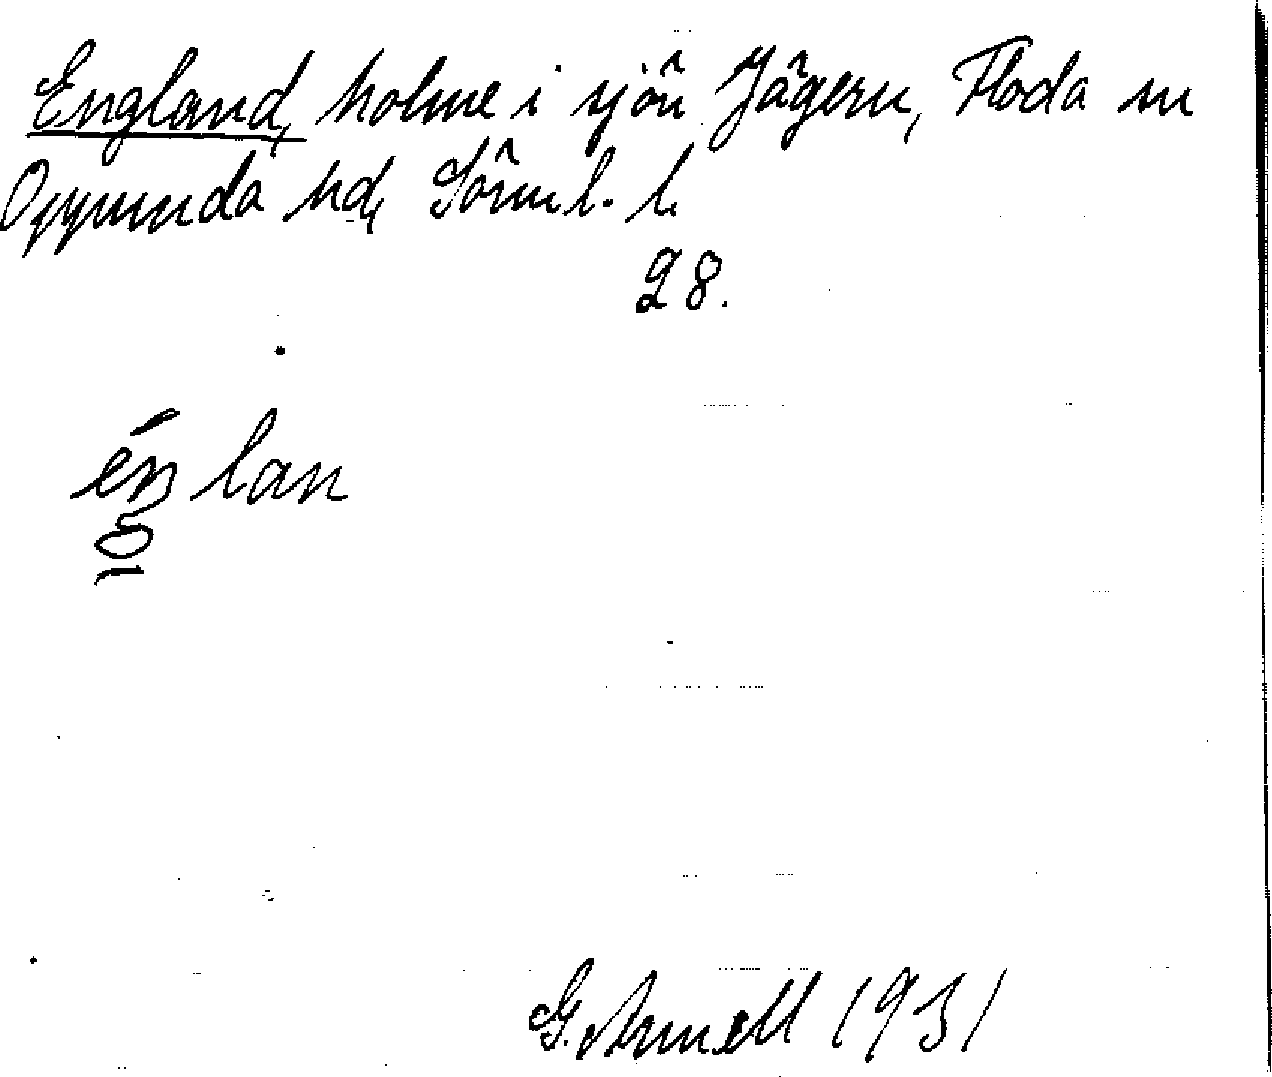 England, holme i sjön Jägern, Floda sn
Oppunda hd, Södml. l.
28.
éŋlan
G. Arnell 1931